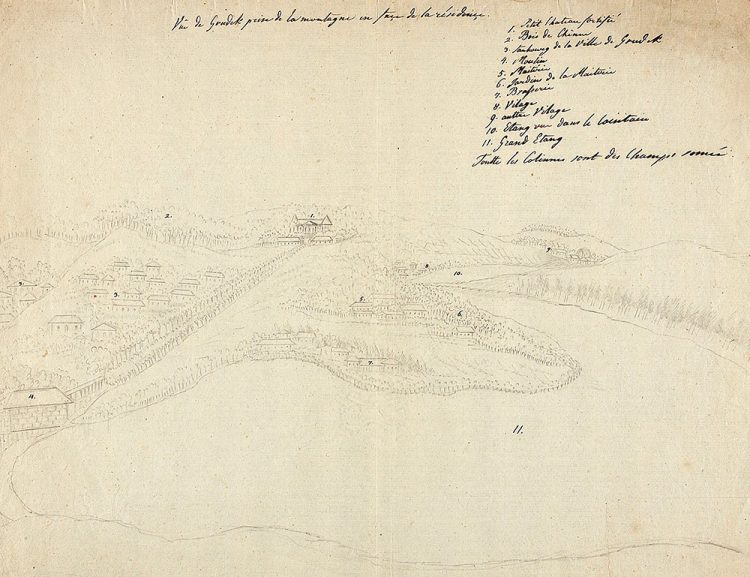 Vüe de Grudek prise de la montagne en face de la résidence.
1. Petit Chateau fortifié
2. Bois de Chêne
3. faubourg de la Ville de Grudek
4. Moulin
5. Maiterie
6. Jardin de la Maiterie
7. Brasserie
8. Vilage
9. auttre Vilage
10. Etang vue dans le lointaen
11. Grand Etang
Toutte les Colinnes sont des Champs semée
2.
1.
9.
8
10.
3.
3.
5.
6.
7.
4.
11.